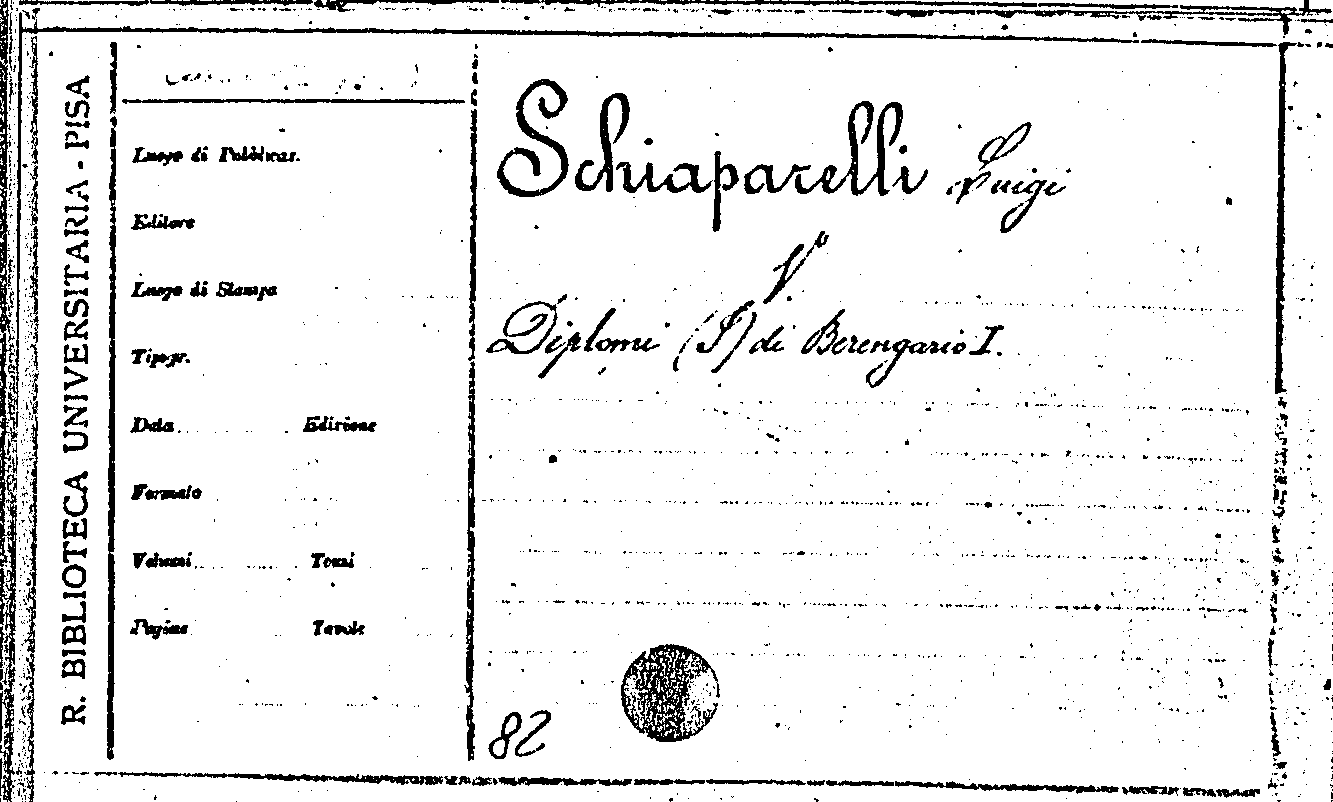 R. BIBLIOTECA UNIVERSITARIA - PISA
Luogo di Pubblicaz.
Editore
Luogo di Stampa
Tipogr.
Data Edizione
Formato
Volumi Tomi
Pagine Tavole
Schiaparelli Luigi
V°
Diplomi (I) di Berengario I.
82